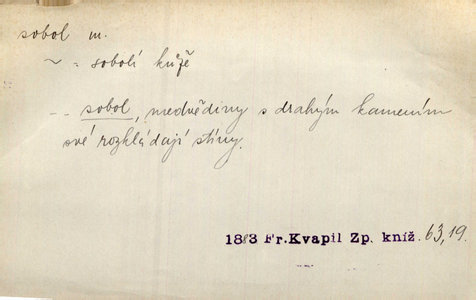 sobol m.
~ = sobolí kůže
-- sobol, medvědiny s drahým kamením
své rozkládají stíny.
1883 Fr.Kvapil Zp. kníž. 63,19.